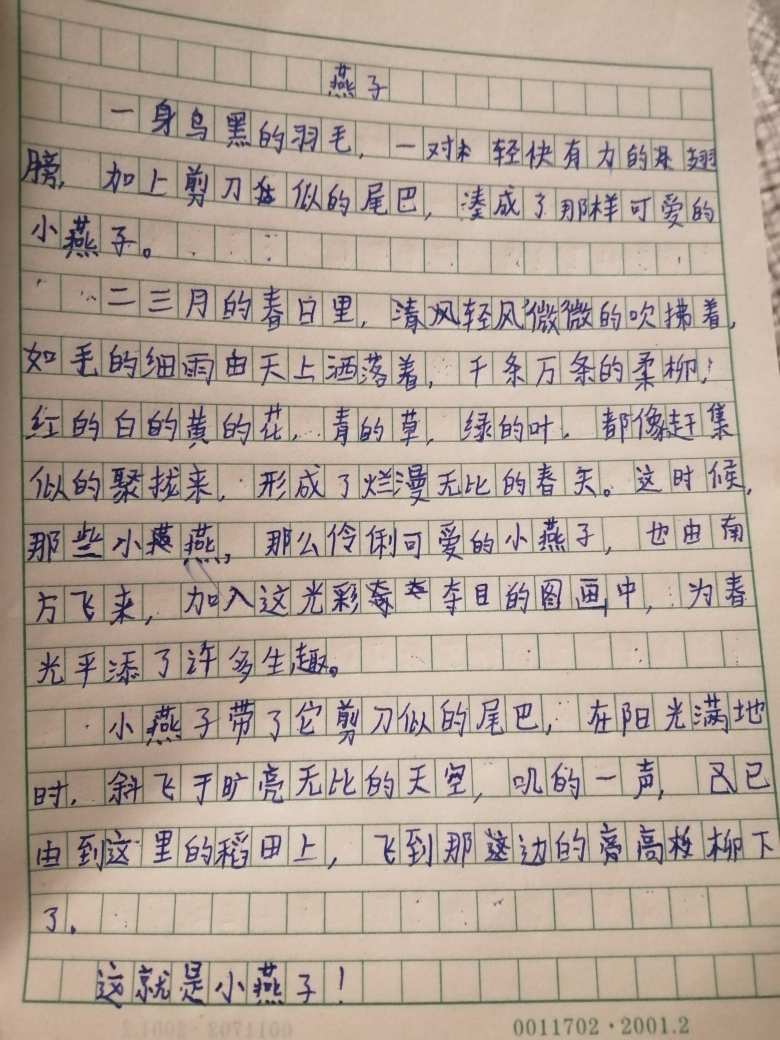 燕子
一身乌黑的羽毛,一对轻快有力的翅
膀,加上剪刀似的尾巴,凑成了那样可爱的
小燕子。
二三月的春日里,清风轻风微微的吹拂着,
如毛的细雨由天上洒落着,千条万条的柔柳,
红的白的黄的花,青的草,绿的叶,都像赶集
似的聚拢来,形成了烂漫无比的春天。这时候,
那些小燕,那么伶俐可爱的小燕子,也由南
方飞来,加入这光彩夺目的图画中,为春
光平添了许多生趣。
小燕子带了它剪刀似的尾巴,在阳光满地
时,斜飞于旷亮无比的天空,叽的一声,已
由到这里的稻田上,飞到那边的高柳下
了。
这就是小燕子!
0011702·2001.2